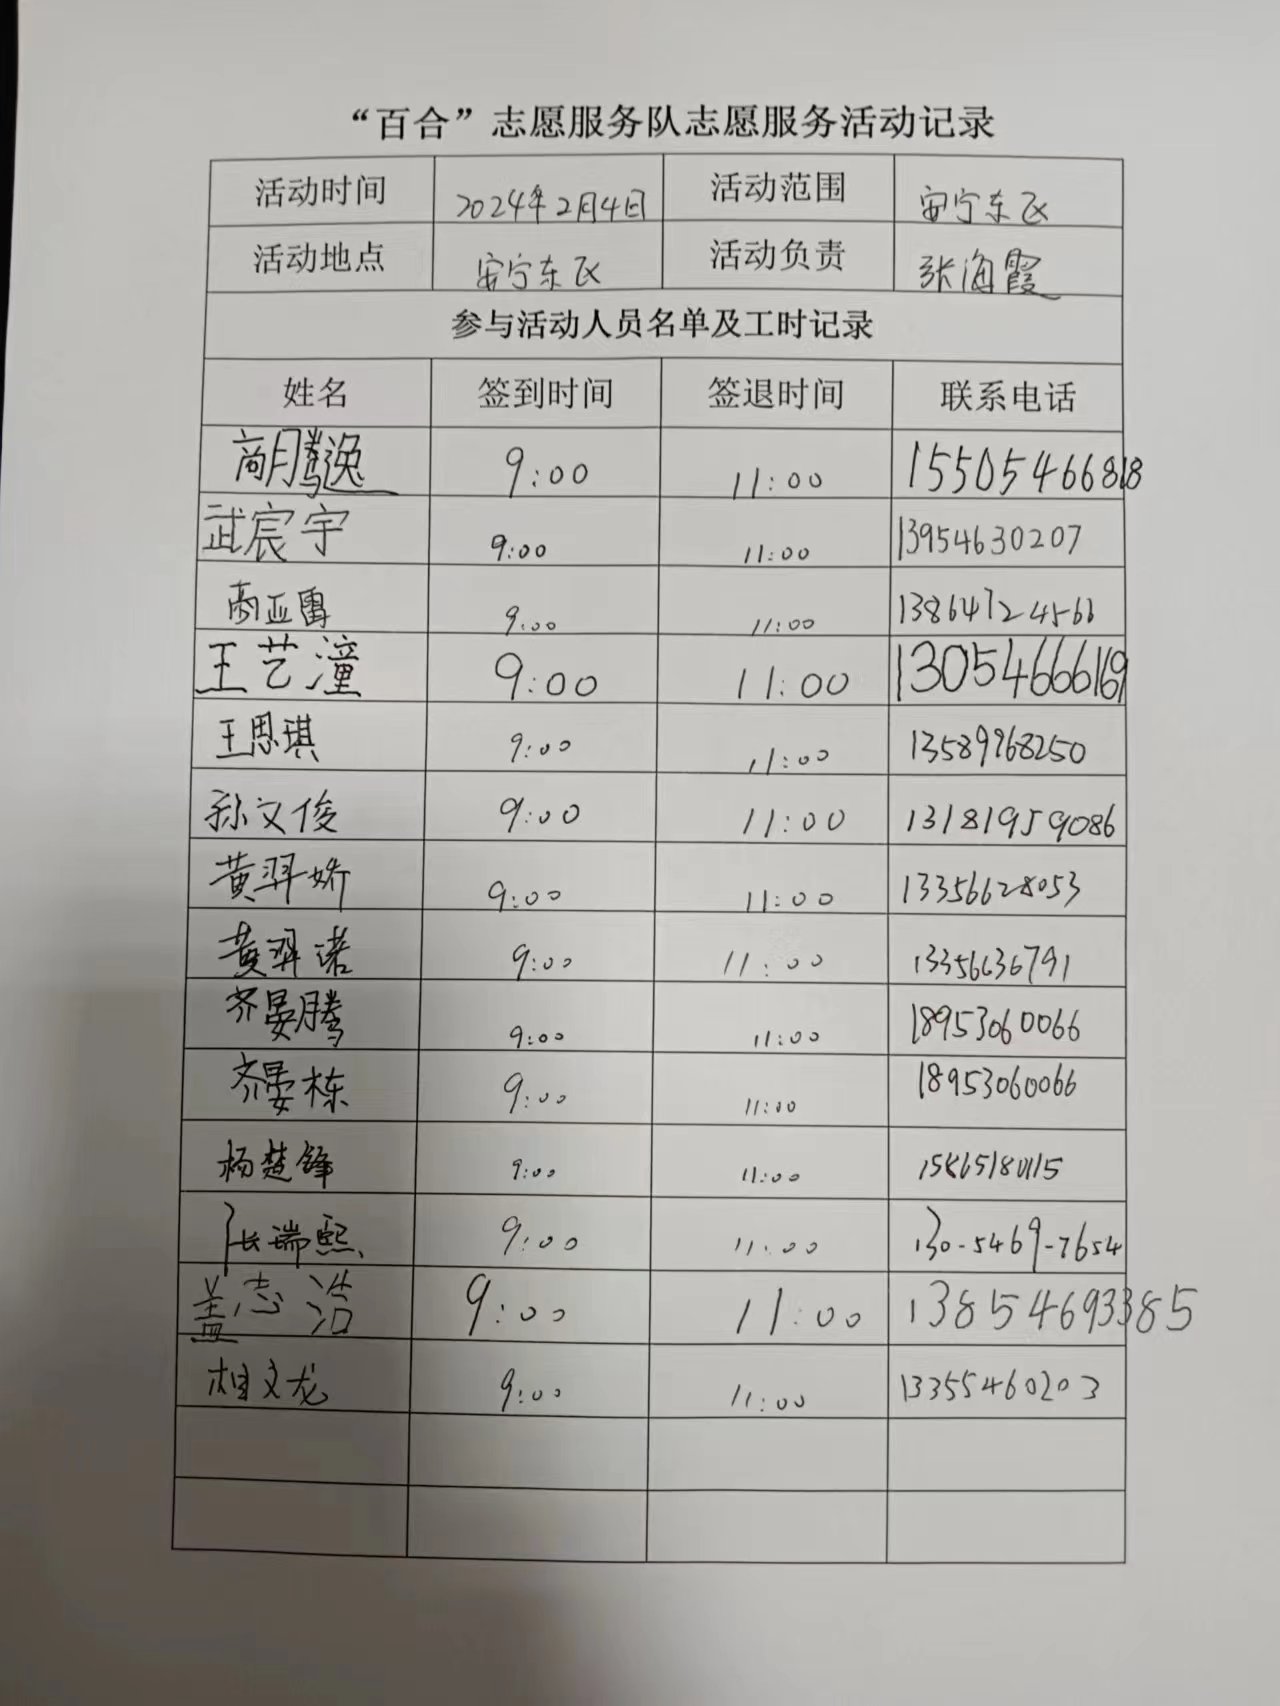 “百合”志愿服务队志愿服务活动记录
活动时间 2024年2月4日 活动范围 安宁东区
活动地点 安宁东区 活动负责 张海霞
参与活动人员名单及工时记录
姓名 签到时间 签退时间 联系电话
商腾逸 9:00 11:00 15505466818
武宸宇 9:00 11:00 13954630207
9:00 11:00 13864724566
王艺潼 9:00 11:00 13054666169
王思琪 9:00 11:00 13589968250
孙文俊 9:00 11:00 13181959086
黄羿娇 9:00 11:00 13356628053
黄羿诺 9:00 11:00 13356636791
齐晏腾 9:00 11:00 18953060066
齐晏栋 9:00 11:00 18953060066
杨楚锋 9:00 11:00 15865180115
张瑞熙 9:00 11:00 130-5469-7654
盖志浩 9:00 11:00 13854693385
相文龙 9:00 11:00 13355460203